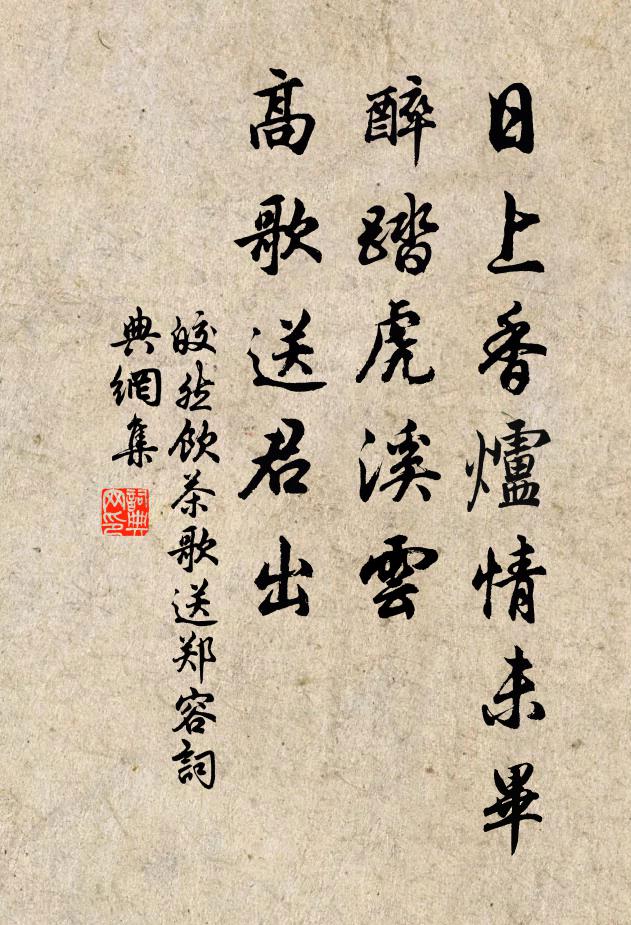 日上香爐情未畢
醉踏虎溪雲
高歌送君出
皎然飲茶歌送郑容詞
典網集
詞典網印